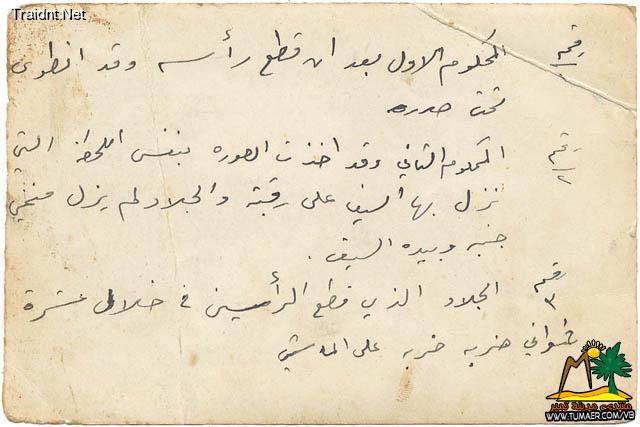 Traidnt.Net
رقم ١ المحكوم الاول بعد ان قطع رأسه وقد انطوى
تحت صدره
رقم ٢ المحكوم الثاني وقد اخذت الصوره بنفس اللحظة التي
تنزل بها السيف على رقبته والجلاد لم يزل منحني
جنبه وبيده السيف.
رقم ٣ الجلاد الذي قطع الرأسين في خلال عشرة
ثواني ضربه ضربه على
منتدى مدينة تمير
WWW.TUMAER.COM/VB